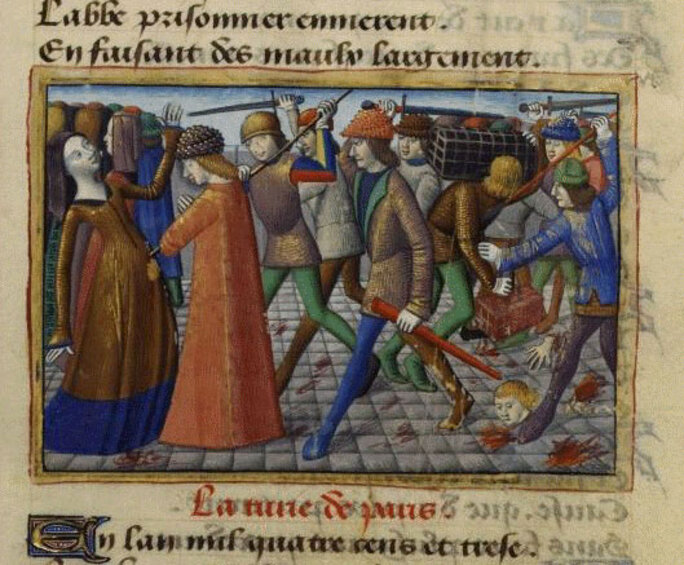 Labbe prisonnier enmenerent.
En faisant des maulx largement.
La turie de paris.
En lan mil quatre cens et trese.